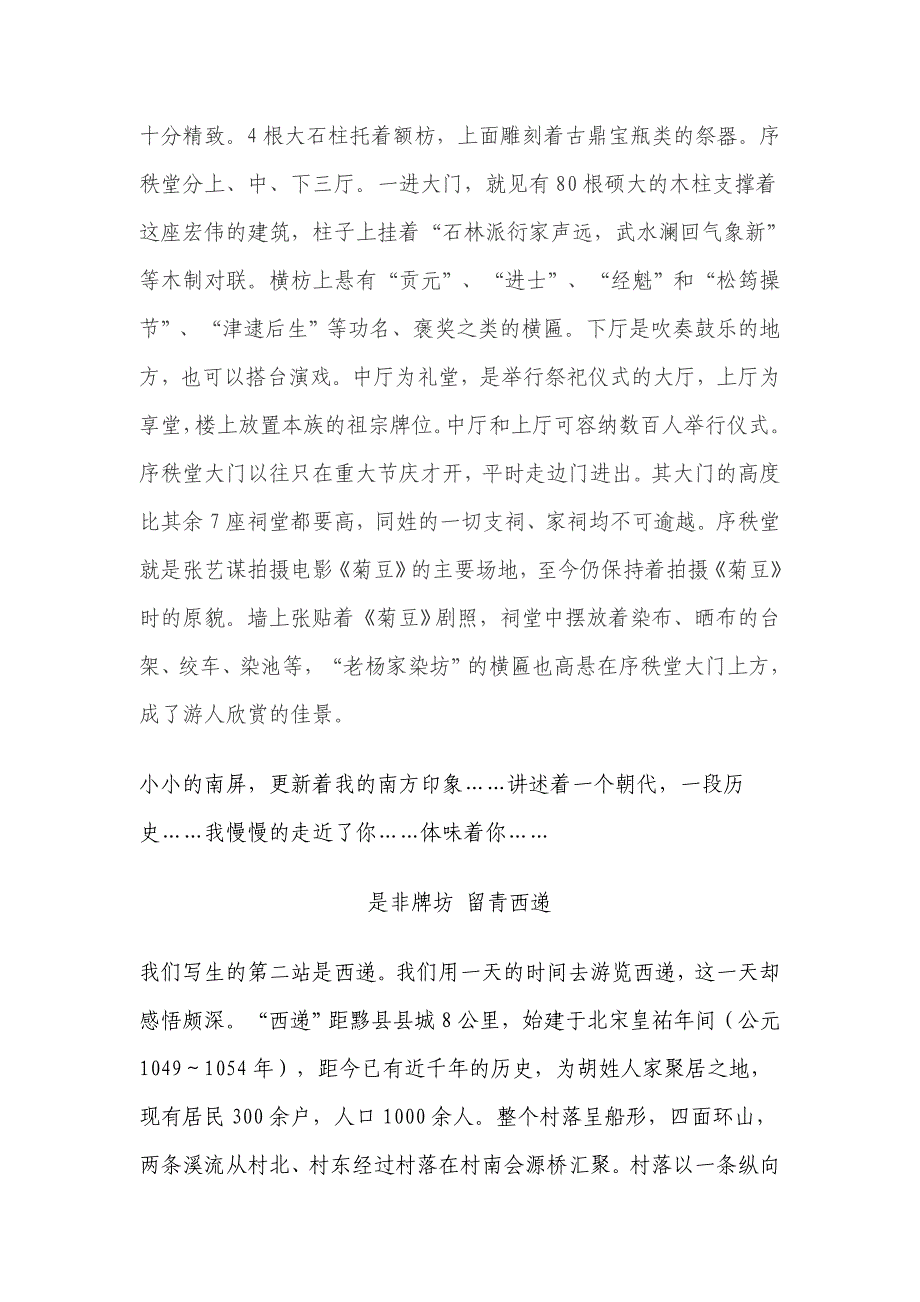 十分精致。4 根大石柱托着额枋，上面雕刻着古鼎宝瓶类的祭器。序
秩堂分上、中、下三厅。一进大门，就见有 80 根硕大的木柱支撑着
这座宏伟的建筑，柱子上挂着“石林派衍家声远，武水澜回气象新”
等木制对联。横枋上悬有“贡元”、“进士”、“经魁”和“松筠操
节”、“津逮后生”等功名、褒奖之类的横匾。下厅是吹奏鼓乐的地
方，也可以搭台演戏。中厅为礼堂，是举行祭祀仪式的大厅，上厅为
享堂，楼上放置本族的祖宗牌位。中厅和上厅可容纳数百人举行仪式。
序秩堂大门以往只在重大节庆才开，平时走边门进出。其大门的高度
比其余 7 座祠堂都要高，同姓的一切支祠、家祠均不可逾越。序秩堂
就是张艺谋拍摄电影《菊豆》的主要场地，至今仍保持着拍摄《菊豆》
时的原貌。墙上张贴着《菊豆》剧照，祠堂中摆放着染布、晒布的台
架、绞车、染池等，“老杨家染坊”的横匾也高悬在序秩堂大门上方，
成了游人欣赏的佳景。
小小的南屏，更新着我的南方印象……讲述着一个朝代，一段历
史……我慢慢的走近了你……体味着你……
是非牌坊 留青西递
我们写生的第二站是西递。我们用一天的时间去游览西递，这一天却
感悟颇深。“西递”距黟县县城 8 公里，始建于北宋皇祐年间（公元
1049～1054 年），距今已有近千年的历史，为胡姓人家聚居之地，
现有居民 300 余户，人口 1000 余人。整个村落呈船形，四面环山，
两条溪流从村北、村东经过村落在村南会源桥汇聚。村落以一条纵向